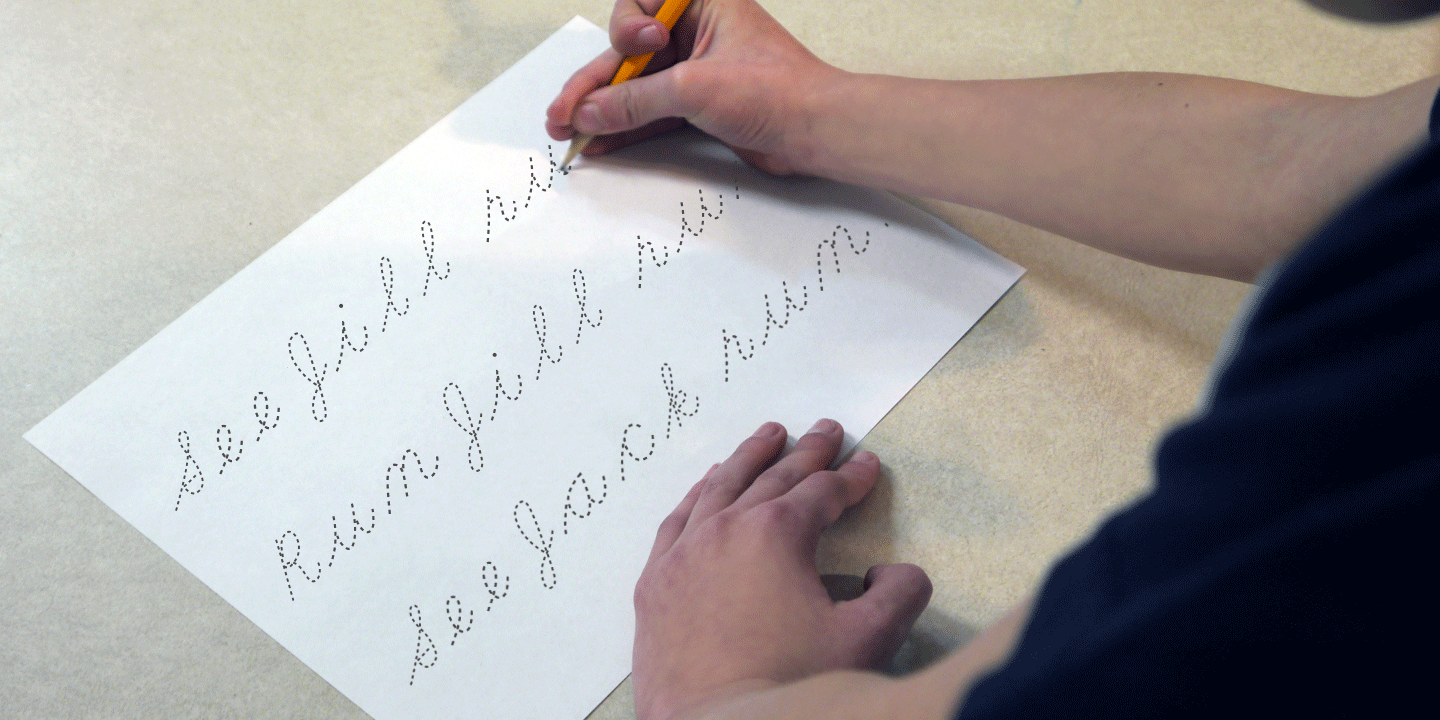 See Jill ru
Run Jill run.
See Jack run.